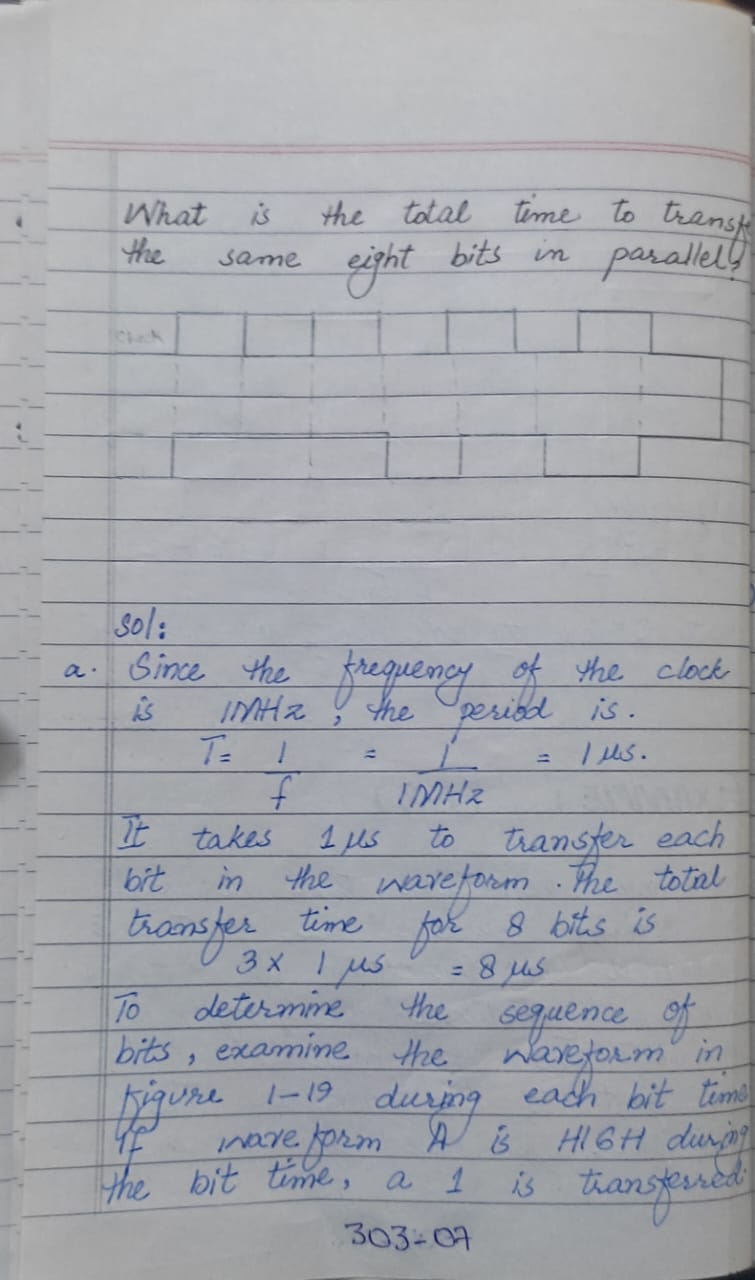 What is the total time to transfe
the same eight bits in parallel?
Clock
sol:
a. Since the frequency of the clock
is 1MHz, the period is.
T = 1/f = 1/1MHz = 1 μs.
It takes 1 μs to transfer each
bit in the waveform. The total
transfer time for 8 bits is
3 x 1 μs = 8 μs
To determine the sequence of
bits, examine the waveform in
figure 1-19 during each bit time
If waveform A is HIGH during
the bit time, a 1 is transferred
303-07